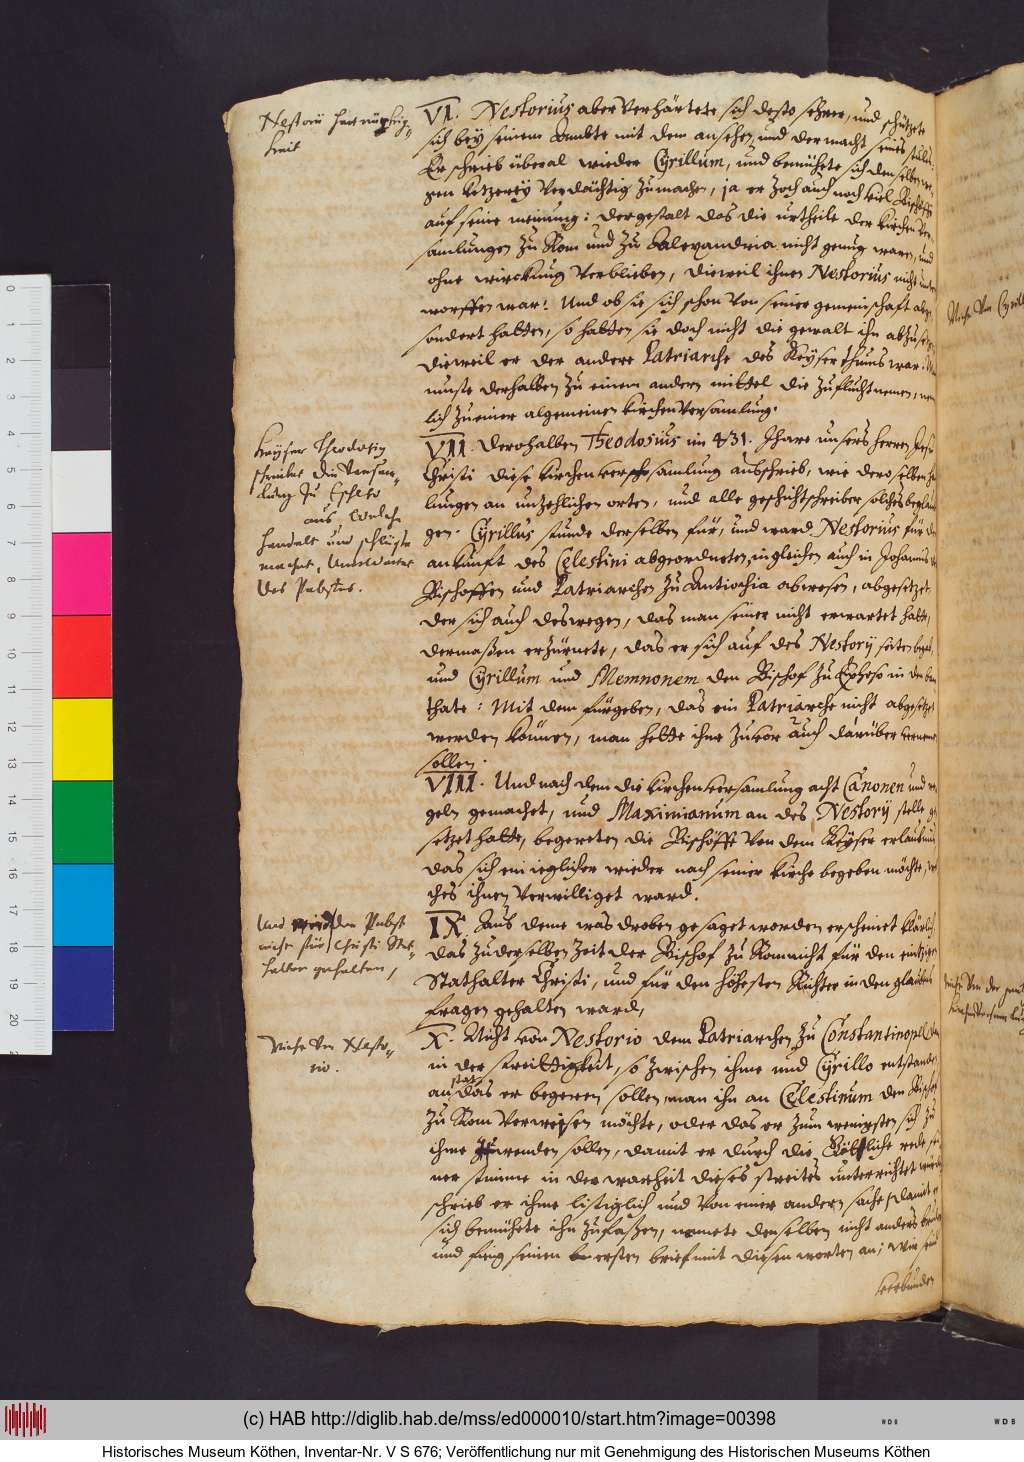 Nestorii hartnäckig-
keit
VI. Nestorius aber verhärtete sich desto sehrer, und schützete
sich bey seinem Ambte mit dem ansehen und der macht seines stuls.
Er schrieb überal wieder Cyrillum, und bemühete sich denselben we-
gen ketzerey verdächtig zu machen, ja er zoch auch noch viel Bischoffe
auf seine meinung: dergestalt das die urtheile der kirchen ver-
samlungen zu Rom und zu Alexandria nicht genug waren, und
ohne wirckung verblieben, dieweil ihnen Nestorius nicht unter
worffen war: Und ob sie sich schon von seiner gemeinschaft abge-
sondert hatten, so hatten sie doch nicht die gewalt ihn abzusetzen
dieweil er der andere Patriarche des Keyserthums war. Man
muste derhalben zu einem andern mittel die zuflucht nemen, nem-
lich zu einer algemeinen kirchen versamlung.
Keyser Theodosius
schreibet die versam-
lung zu Epheso
aus, welche
handelt und schlüsse
machet, ohne
des Pabstes.
VII. Derohalben Theodosius im 431. Jhare unsers herren Jesu
Christi diese kirchen versamlung ausschrieb, wie deroselben ha
lungen an unzehlichen orten, und alle geschichtschreiber solches bezeu
gen. Cyrillus stunde derselben für, und ward Nestorius für der
ankunft des Celestini abgeordneten, ingleichen auch in Johannis des
Bischoffen und Patriarchen zu Antiochia abwesen, abgesetzet
der sich auch deswegen, das man seiner nicht erwartet hatte,
dermaßen erzürnete, das er sich auf des Nestorij seiten begab,
und Cyrillum und Memnonem den Bischof zu Epheso in den ban
thate: Mit dem fürgeben, das ein Patriarche nicht abgesetzet
werden können, man hette ihne zuvor auch darüber vernemen
sollen.
VIII. Und nach dem die kirchen versamlung acht Canonen und re-
geln gemachet, und Maximianum an des Nestorij stelle ge-
setzet hatte, begereten die Bischöffe von dem Keyser erlaubnus
das sich ein ieglicher wieder nach seiner kirche begeben möchte, wel
ches ihnen verwilliget ward.
Und wird der Pabst
nicht für Christi Stat-
halter gehalten,
IX. Aus deme was droben gesaget worden erscheinet klärlich,
das zu derselben Zeit der Bischof zu Rom nicht für den eintzigen
Stathalter Christi, und für den höhesten Richter in den glaubens
fragen gehalten ward,
Nicht von Nesto-
rio.
X. Nicht von Nestorio dem Patriarchen zu Constantinopel, dan
in der streittigkeit, so zwischen ihme und Cyrillo entstanden
an stat das er begeren sollen, man ihn an Celestinum den Bischof
zu Rom verweisen möchte, oder das er zum wenigsten sich zu
ihme wenden sollen, damit er durch die Päbstliche rede sei-
ner stimme in der warheit dieses streites unterrichtet würde
schrieb er ihme listiglich und von einer andern sache, damit er
sich bemühete ihn zu faßen, nennete denselben nicht anders bruder
und fieng seinen ersten brief mit diesen worten an; Wir seind
verbunden
Nicht von Cyrill
nicht von der gan
kirchen versamlu
0
1
2
3
4
5
6
7
8
9
10
11
12
13
14
15
16
17
18
19
20
(c) HAB http://diglib.hab.de/mss/ed000010/start.htm?image=00398
WDB
WDB
Historisches Museum Köthen, Inventar-Nr. V S 676; Veröffentlichung nur mit Genehmigung des Historischen Museums Köthen